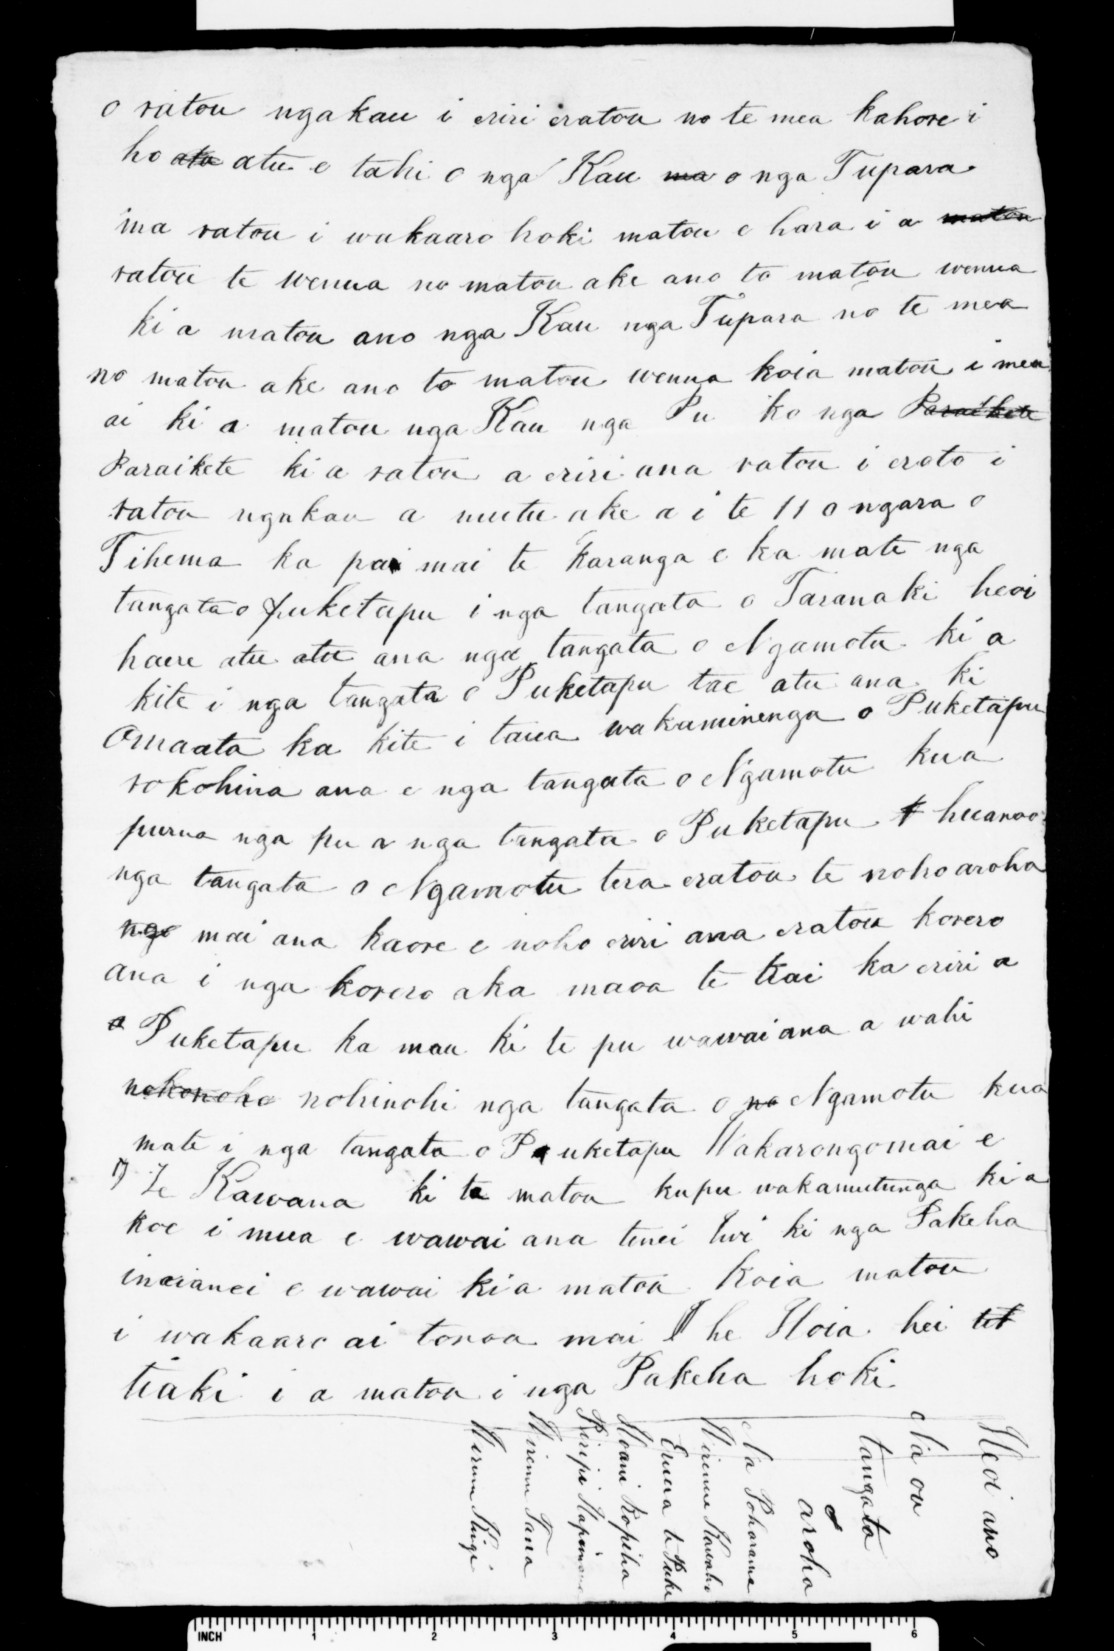 o ratou ngakau i eriri eratou no te mea kahore i
ho ata atu e tahi o nga Kau ma o nga Tupara
ma ratou i wakaaro hoki matou e hara i a matou
ratou te wenua no matou ake ano to matou wenua
ki a matou ano nga Kau nga Tupara no te mea
no matou ake ano to matou wenua koia matou i mea
ai ki a matou nga Kau nga Pu ko nga Paraikete
Paraikete ki a ratou a eriri ana ratou i eroto i
ratou ngakau a mutu ake a i te 11 o ngara o
Tihema ka pai mai te karanga e ka mate nga
tangata o Puketapu i nga tangata o Taranaki heoi
haere atu atu ana nga tangata o Ngamotu ki a
kite i nga tangata o Puketapu tae atu ana ki
Omaata ka kite i taua wakaminenga o Puketapu
rokohina ana e nga tangata o Ngamotu kua
purua nga pu a nga tangata o Puketapu t huanoa
nga tangata o Ngamotu tera eratou te noho aroha
nga mai ana kaore e noho eriri ana eratou korero
ana i nga korero aka maoa te kai ka eriri a
a Puketapu ka mau ki te pu wawai ana a wahi
nohonoho nohinohi nga tangata o na Ngamotu kua
mate i nga tangata o Puketapu Wakarongomai e
Te Kawana ki ta matou kupu wakamutunga ki a
koe i mua e wawai ana tenei Iwi ki nga Pakeha
inaianei e wawai ki a matou Koia matou
i wakaaro ai tonoa mai he Hoia hei
tiaki i a matou i nga Pakeha hoki
Heoi ano
Na ou
tangata
aroha
Na Poharama
Wiremu Kawaho
Eruera te Puke
Hoani Ropiha
Piripi Hapimana
Wiremu Tana
Wiremu Kingi
INCH 1 2 3 4 5 6